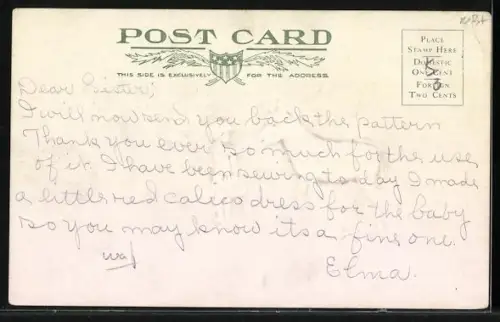 POST CARD
THIS SIDE IS EXCLUSIVELY FOR THE ADDRESS.
PLACE
STAMP HERE
DOMESTIC
ONE CENT
FOREIGN
TWO CENTS
Dear Sister;
I will now send you back the pattern
Thank you ever so much for the use
of it. I have been sewing today I made
a little red calico dress for the baby
so you may know its a fine one.
Elma.